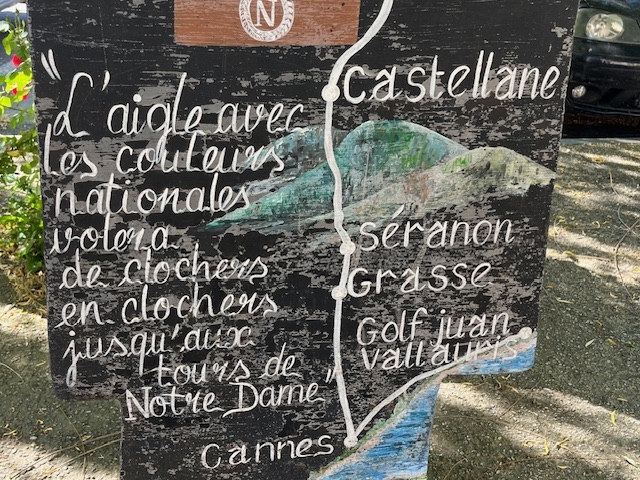 N
Castellane
"L'aigle avec
les couleurs
nationales
volera
de clochers
en clochers
jusqu'aux
tours de
Notre Dame"
séranon
Grasse
Golf juan
vallauris
Cannes